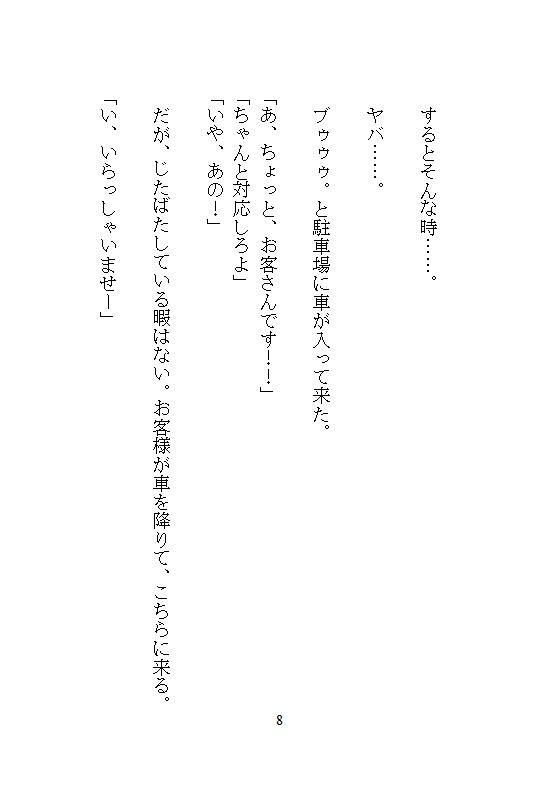 するとそんな時……。
ヤバ……。
ブゥゥゥ。と駐車場に車が入って来た。
「あ、ちょっと、お客さんです！！」
「ちゃんと対応しろよ」
「いや、あの！」
だが、じたばたしている暇はない。お客様が車を降りて、こちらに来る。
「い、いらっしゃいませー」
8